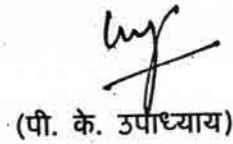 (पी. के. उपाध्याय)